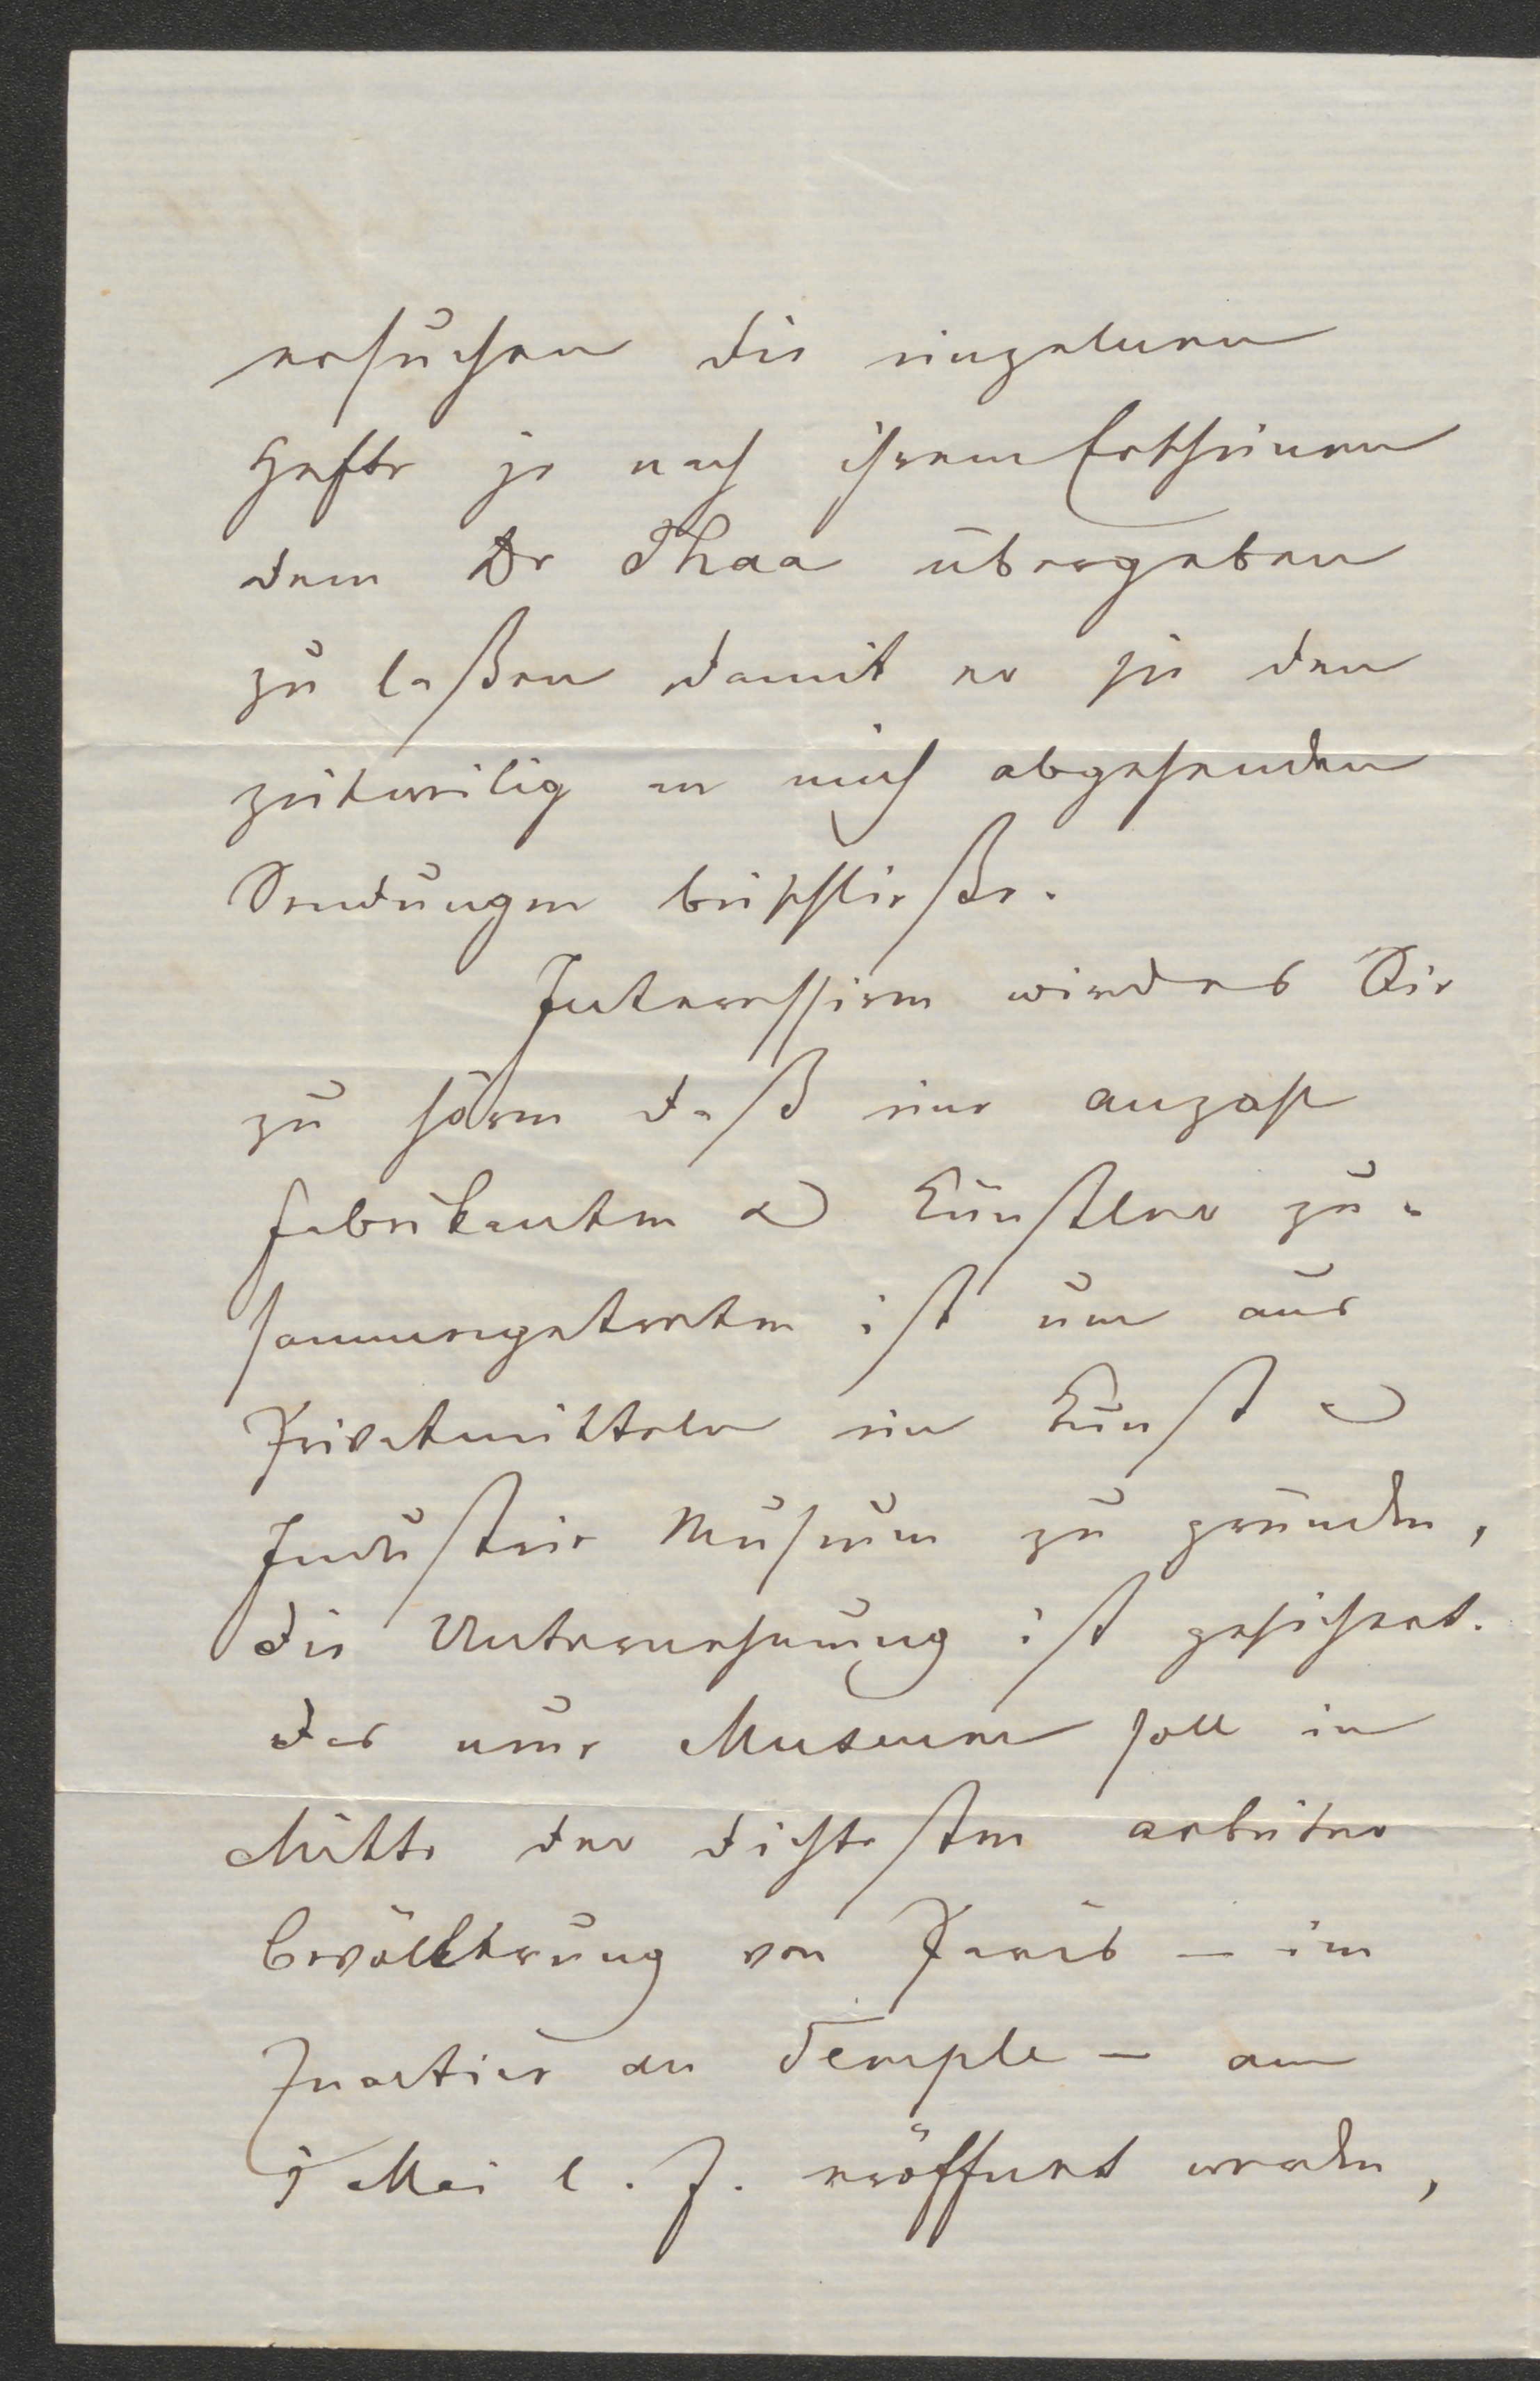 ersuchen die einzelnen
Hefte je nach ihrem Erscheinen
dem Dr Thaa übergeben
zu laßen damit er sie den
zeitweilig an mich abgehenden
Sendungen beischließe.
Interessiren wird es Dir
zu hören daß eine anzahl
Fabrikanten & Künstler zu-
sammengetreten ist um aus
Privatmitteln ein Kunst &
Industrie Museum zu gründen,
die Unternehmung ist gesichert.
das neue Museum soll in
Mitte der dichtesten arbeiter
Bevölkerung von Paris – im
Quartier du Temple – am
1 Mai l. J. eröffnet werden,